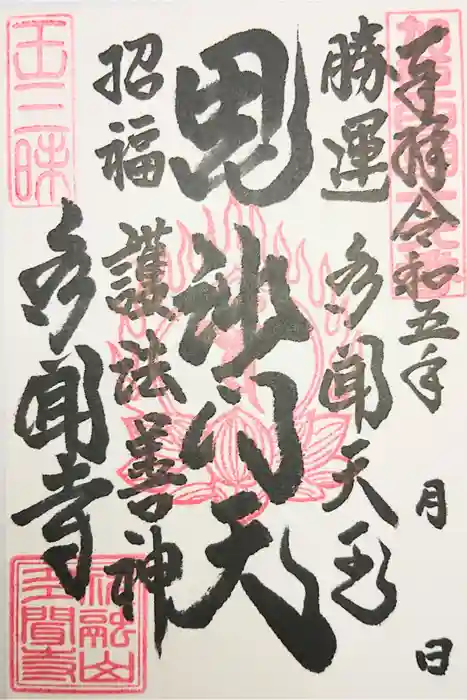 奉拝 令和五年 月 日
勝運 多聞天王
毘沙門天
招福 護法善神
多聞寺
王三昧
祥龍山多聞寺